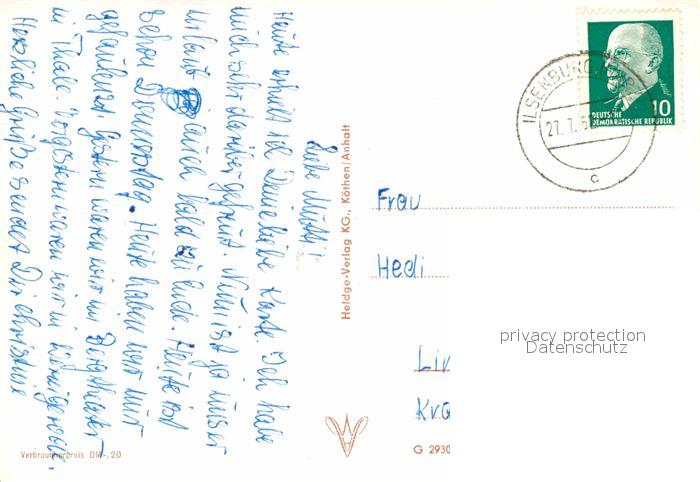 Liebe Mutti!
Heute erhielt ich Deine liebe Karte. Ich habe
mich sehr darüber gefreut. Nun ist ja unser
Urlaub auch bald zu Ende. Heute ist
schon Donnerstag. Heute haben wir nur
gefaulenzt. Gestern waren wir im Bergtheater
in Thale. Vorgestern waren wir in Wernigerode.
Herzliche Grüße sendet Dir Christine
Heldge-Verlag KG., Köthen/Anhalt
Verbraucherpreis DM -,20
ILSENBURG
27.7.6
c
10
DEUTSCHE
DEMOKRATISCHE REPUBLIK
Frau
Hedi
privacy protection
Datenschutz
G 2930